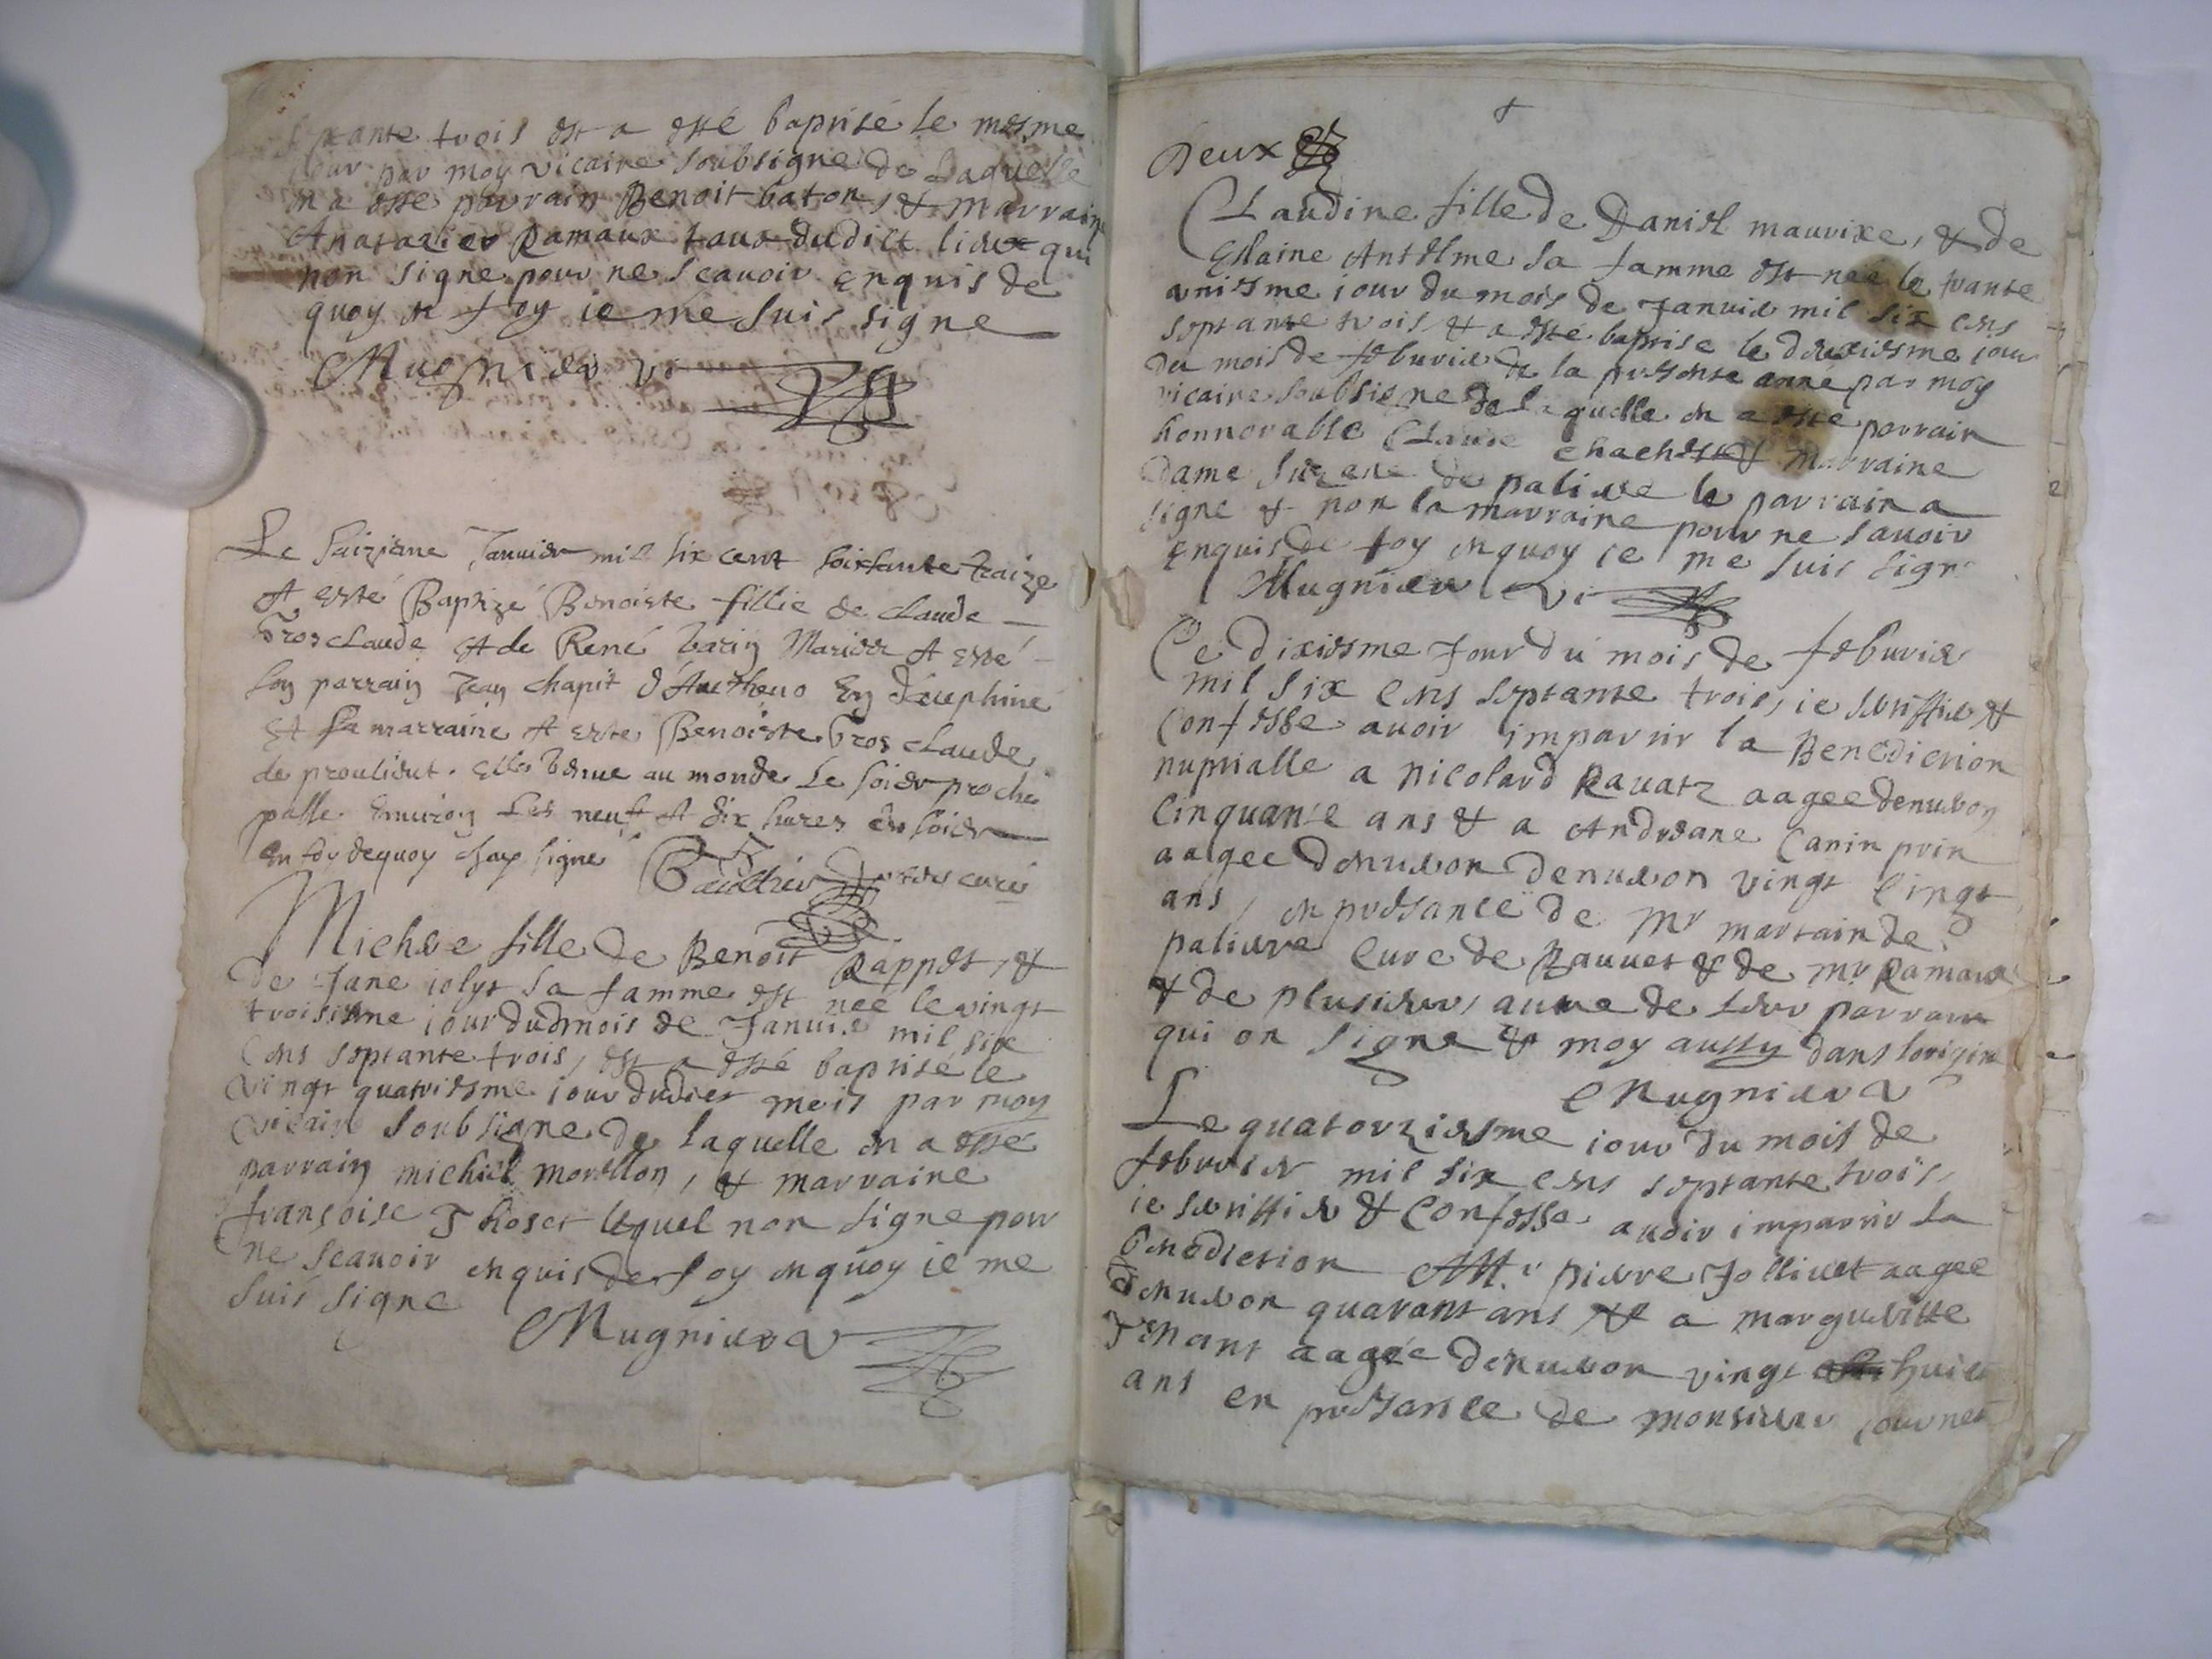 ptante trois est a esté baptisé le mesme
jour par moy vicaire soubsigne de Laquelle
en a esté parrain Benoit baton, & marraine
Anatazier Ramaux tous dudict lieux qui
non signe pour ne scauoir enquis de
quoy en foy ie me suis signe
Mugnier vi
Le saizieme Januier mil six cent soixante traize
A esté Baptizé Benoiste fillie de claude
Grosclaude et de René bazin Mariez A esté
son parrain Jean chapit d'Autheuo En dauphiné
Et sa marraine A este Benoiste Gros claude
de proulieut. Elle benue au monde le soier proche
passe. Enuiron les neuf A dix hures du soier
en foy dequoy ay signe
curé
Michee fille de Benoit Rappet, &
de Jane iolyt sa famme est neé le vingt
troisieme iour dudmois de Januie mil six
cens septante trois, est a esté baptisé le
vingt quatriesme iour dudict mois par moy
vicaire soubsigne de laquelle en a esté
parrain michiel morellon, & marraine
françoise Thoset lequel non signe pour
ne scauoir enquis de foy en quoy ie me
suis signe
Mugnier v
Deux
Claudine fille de Daniel maurixe, & de
Elaine Antelme sa famme est neé le trante
uniesme iour du mois de Januie mil six cens
septante trois & a esté baptise le deuxiesme iour
du mois de feburie de la presente anné par moy
vicaire soubsigne de laquelle en a esté parrain
honnorable Claude chachet & marraine
Dame suzane de paliere le parrain a
signe & non la marraine pour ne sauoir
enquis de foy en quoy ie me suis sign
Mugnier vi
Ce dixiesme Jour du mois de feburier
mil six cens septante trois, ie sertiffie &
confesse auoir impartir la Benediction
nuptialle a nicolard Rauatz aagee denuiron
cinquante ans & a Andreane Canin prin
aagee denuiron denuiron vingt cinqt
ans, en presance de Mr martain de
paliere cure de & de mr Ramaux
& de plusieurs autre de leur parrans
qui on signe & moy aussy dans lorigin
Mugnier v
Le quatorziesme iour du mois de
feburier mil six cens septante trois,
ie sertiffie & confesse auoir impartir la
benediction Mr. pierre Jolliuet aagee
denuiron quarant ans & a marguerite
Tenant aagée denuiron vingt huict
ans en presance de monsieur journet